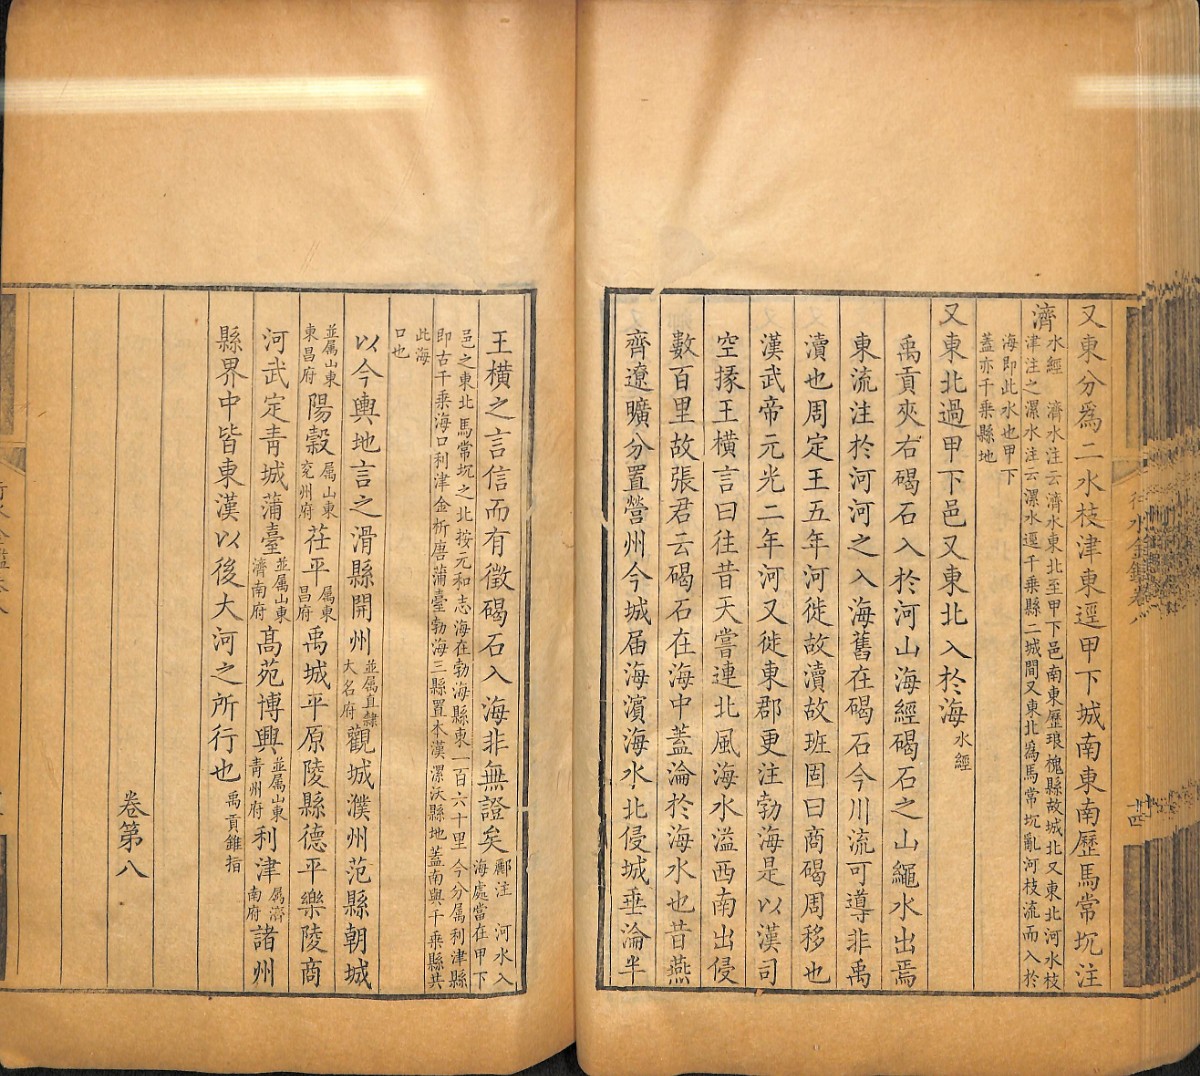 又東分爲二水枝津東逕甲下城南東南歷馬常坈注
濟水經　濟水注云濟水東北至甲下邑南東歷琅槐縣故城北又東北河水枝
津注之漯水注云漯水逕千乗縣二城間又東北爲馬常坈亂河枝流而入於
海即此水也甲下
蓋亦千乗縣地
又東北過甲下邑又東北入於海水經
禹貢夾右碣石入於河山海經碣石之山繩水出焉
東流注於河河之入海舊在碣石今川流可導非禹
瀆也周定王五年河徙故瀆故班固曰商碣周移也
漢武帝元光二年河又徙東郡更注勃海是以漢司
空掾王橫言曰往昔天嘗連北風海水溢西南出侵
數百里故張君云碣石在海中蓋淪於海水也昔燕
齊遼曠分置營州今城届海濱海水北侵城垂淪半
行水金鑑卷八
十四
王橫之言信而有徵碣石入海非無證矣酈注　河水入
海處當在甲下
邑之東北馬常坈之北按元和志海在勃海縣東一百六十里今分属利津縣
即古千乗海口利津金析唐蒲臺勃海三縣置本漢漯沃縣地蓋南與千乗縣共
此海
口也
以今輿地言之滑縣開州並属直隸大名府觀城濮州范縣朝城
並属山東東昌府陽穀属山東兖州府茌平属東昌府禹城平原陵縣德平樂陵商
河武定青城蒲臺並属山東濟南府髙苑博興並属山東青州府利津属濟南府諸州
縣界中皆東漢以後大河之所行也禹貢錐指
卷第八